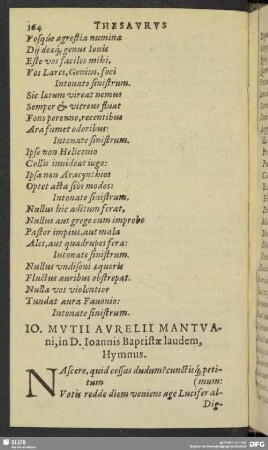 164 THESAVRVS
Vosq́ue agrestia numina
Dij deæq́, genus Iouis
Este vos facilos mihi,
Vos Lares, Genius, foci
Intonate sinistrum.
Sic lætum vireat nemus
Semper & vitreus fluat
Fons perenne, recentibus
Ara fumet odoribus:
Intonate sinistrum.
Ipse non Heliconio
Collis inuideat iugo:
Ipsa non Aracynthios
Optet acta sibi modos:
Intonate sinistrum.
Nullus hic aditum ferat,
Nullus aut grege cum improbo
Pastor impius, aut mala
Ales, aut quadrupes fera:
Intonate sinistrum.
Nullus vndisoni æquoris
Fluctus auribus obstrepat.
Nulla vos violentior
Tundat aura Fauonio:
Intonate sinistrum.
IO. MVTII AVRELII MANTVA
ni, in D. Ioannis Baptistæ laudem,
Hymnus.
NAscere, quid cessas dudum? cunctisq́, peti-
tum (mum:
Votis redde diem veniens age Lucifer al-
Dig-
SLUB